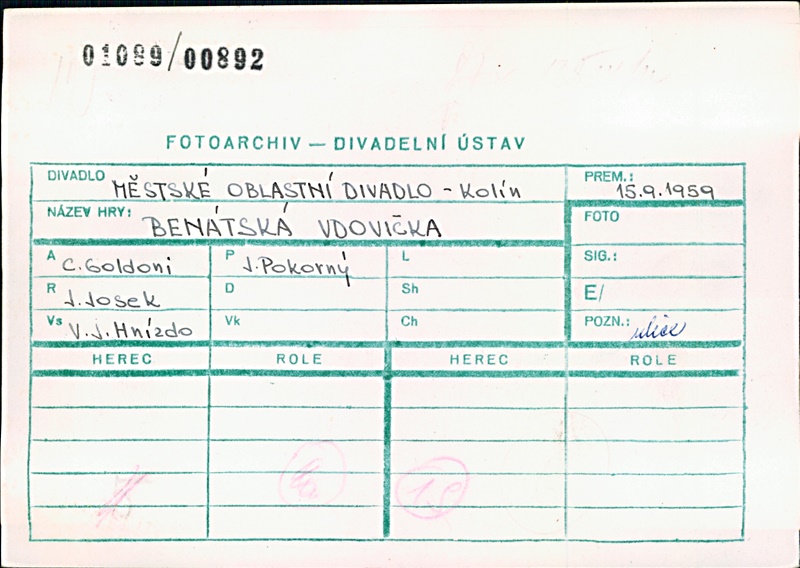 01089/00892
FOTOARCHIV — DIVADELNÍ ÚSTAV
DIVADLO MĚSTSKÉ OBLASTNÍ DIVADLO - Kolín
PREM.: 15.9.1959
NÁZEV HRY: BENÁTSKÁ VDOVIČKA
FOTO
A C. Goldoni P J. Pokorný L
SIG.:
R J. Josek D Sh
E/
Vs V. J. Hnízdo Vk Ch
POZN.: ulice
HEREC ROLE HEREC ROLE